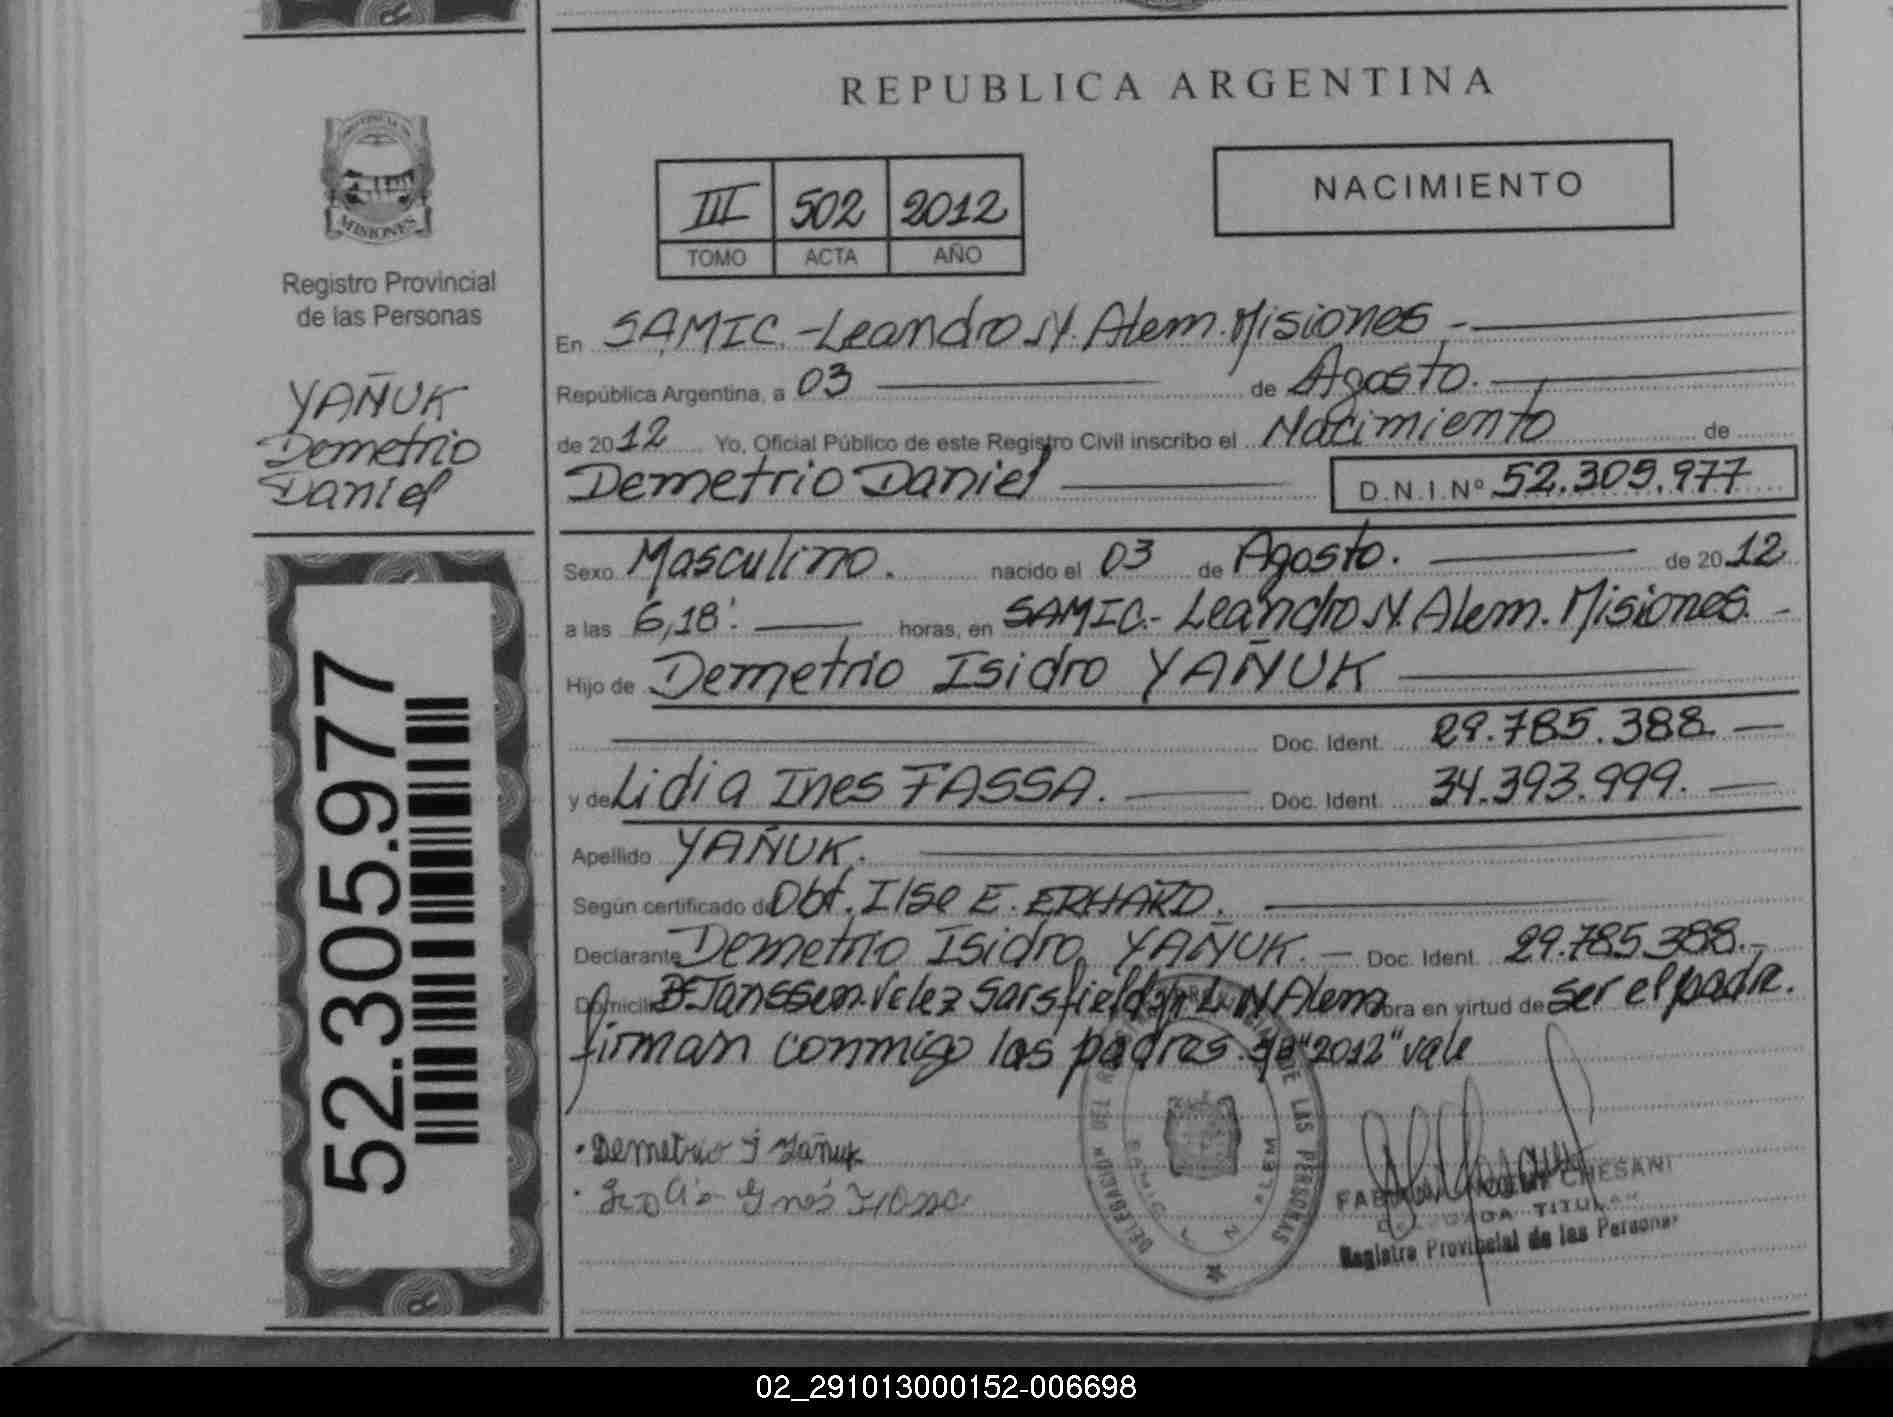 REPUBLICA ARGENTINA
PROVINCIA DE
MISIONES
Registro Provincial
de las Personas
III 502 2012
TOMO ACTA AÑO
NACIMIENTO
YAÑUK
Demetrio
Daniel
52.305.977
En SAMIC.-Leandro N. Alem. Misiones.-
República Argentina, a 03 de Agosto.
de 2012 Yo, Oficial Público de este Registro Civil inscribo el Nacimiento de
Demetrio Daniel D.N.I.Nº 52.305.977
Sexo Masculino. nacido el 03 de Agosto. de 2012
a las 6,18' horas, en SAMIC.- Leandro N. Alem. Misiones.-
Hijo de Demetrio Isidro YAÑUK
Doc. Ident. 29.785.388.
y de Lidia Ines FASSA. Doc. Ident. 34.393.999.
Apellido YAÑUK.
Según certificado de Obt. Ilse E. ERHARD.
Declarante Demetrio Isidro YAÑUK. Doc. Ident. 29.785.388.-
Domicilio Bº Janssen. Velez Sarsfield L. N Alem obra en virtud de ser el padre.
firman conmigo los padres. "2012" vale
Demetrio I Yañuk
DELEGACION
DE LAS PERSONAS
SAMIC
L N ALEM
CHESANI
TITULAR
Registro Provincial de las Personas
02_291013000152-006698